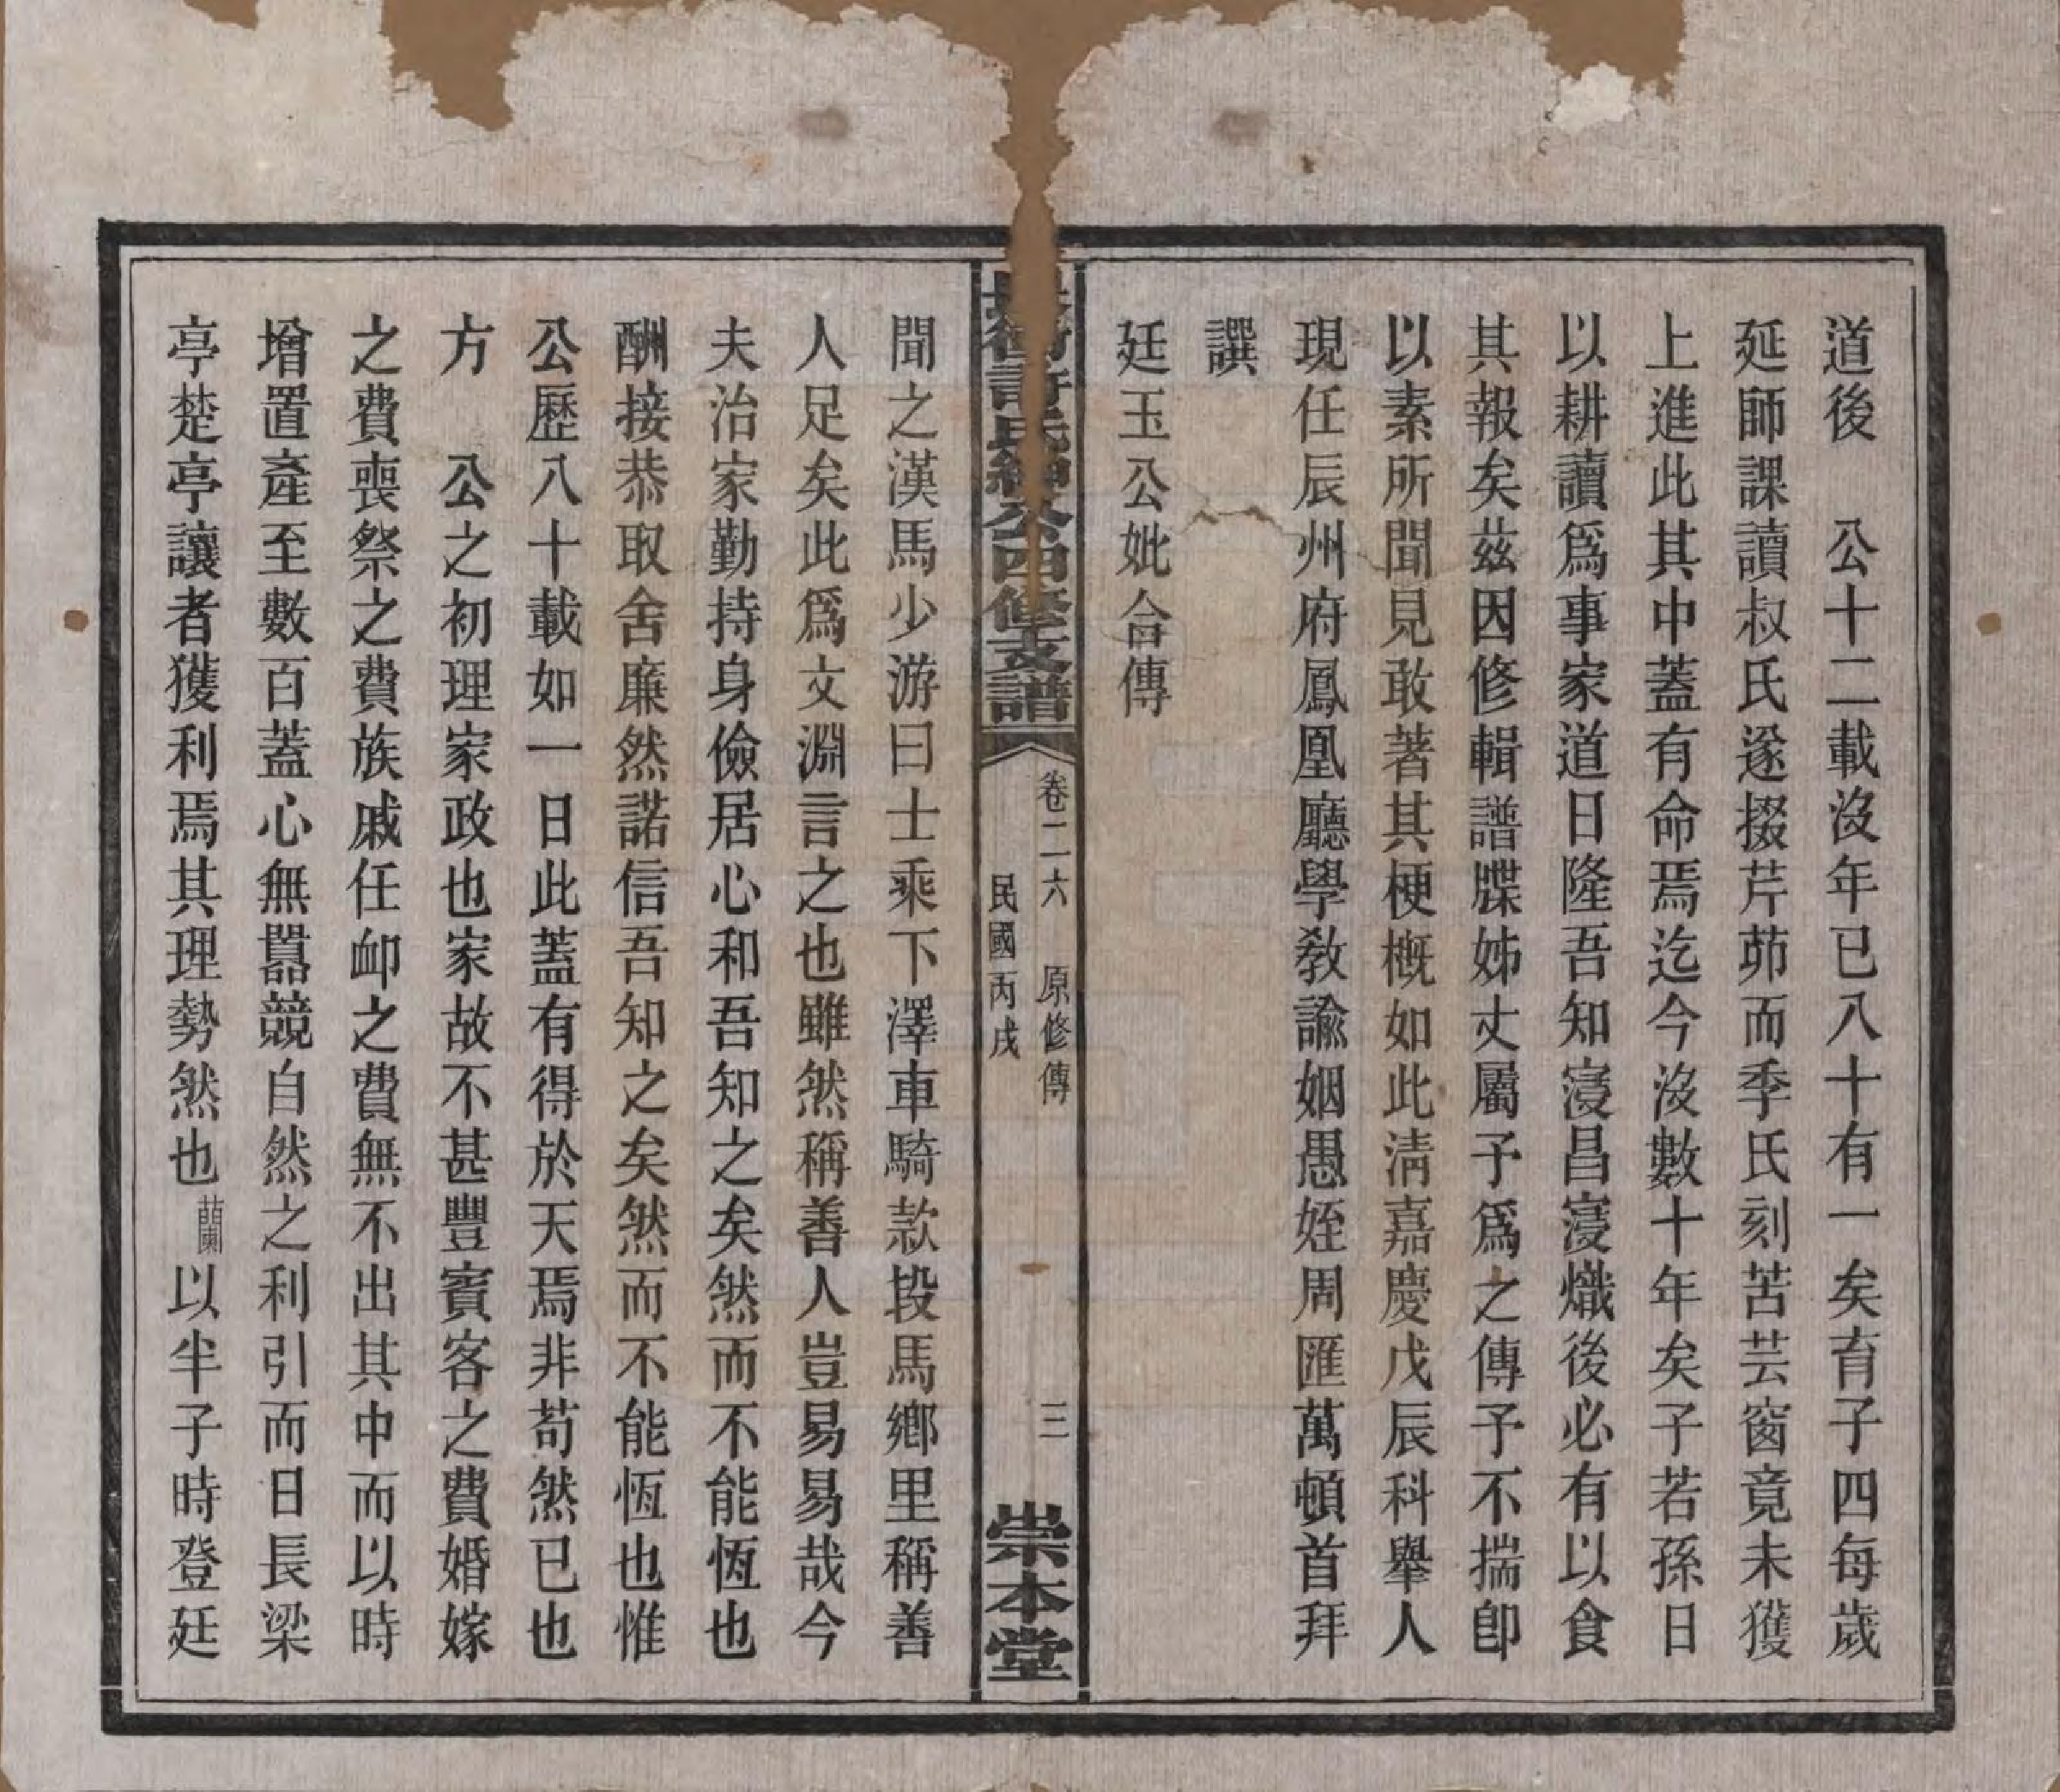 道後　公十二載沒年已八十有一矣育子四每歲
延師課讀叔氏遂掇芹茆而季氏刻苦芸窗竟未獲
上進此其中蓋有命焉迄今沒數十年矣子若孫日
以耕讀爲事家道日隆吾知寖昌寖熾後必有以食
其報矣茲因修輯譜牒姊丈屬予爲之傳予不揣卽
以素所聞見敢著其梗概如此淸嘉慶戊辰科舉人
現任辰州府鳳凰廳學教諭姻愚姪周匯萬頓首拜
譔
廷玉公妣合傳
衝許氏公四修支譜
卷二六　原修傳
三
民國丙戌
崇本堂
聞之漢馬少游曰士乘下澤車騎款段馬鄉里稱善
人足矣此爲文淵言之也雖然稱善人豈易易哉今
夫治家勤持身儉居心和吾知之矣然而不能恆也
酬接恭取舍廉然諾信吾知之矣然而不能恆也惟
公歷八十載如一日此蓋有得於天焉非苟然已也
方　公之初理家政也家故不甚豐賓客之費婚嫁
之費喪祭之費族戚任卹之費無不出其中而以時
增置產至數百蓋心無囂競自然之利引而日長梁
亭楚亭讓者獲利焉其理勢然也蘭以半子時登廷